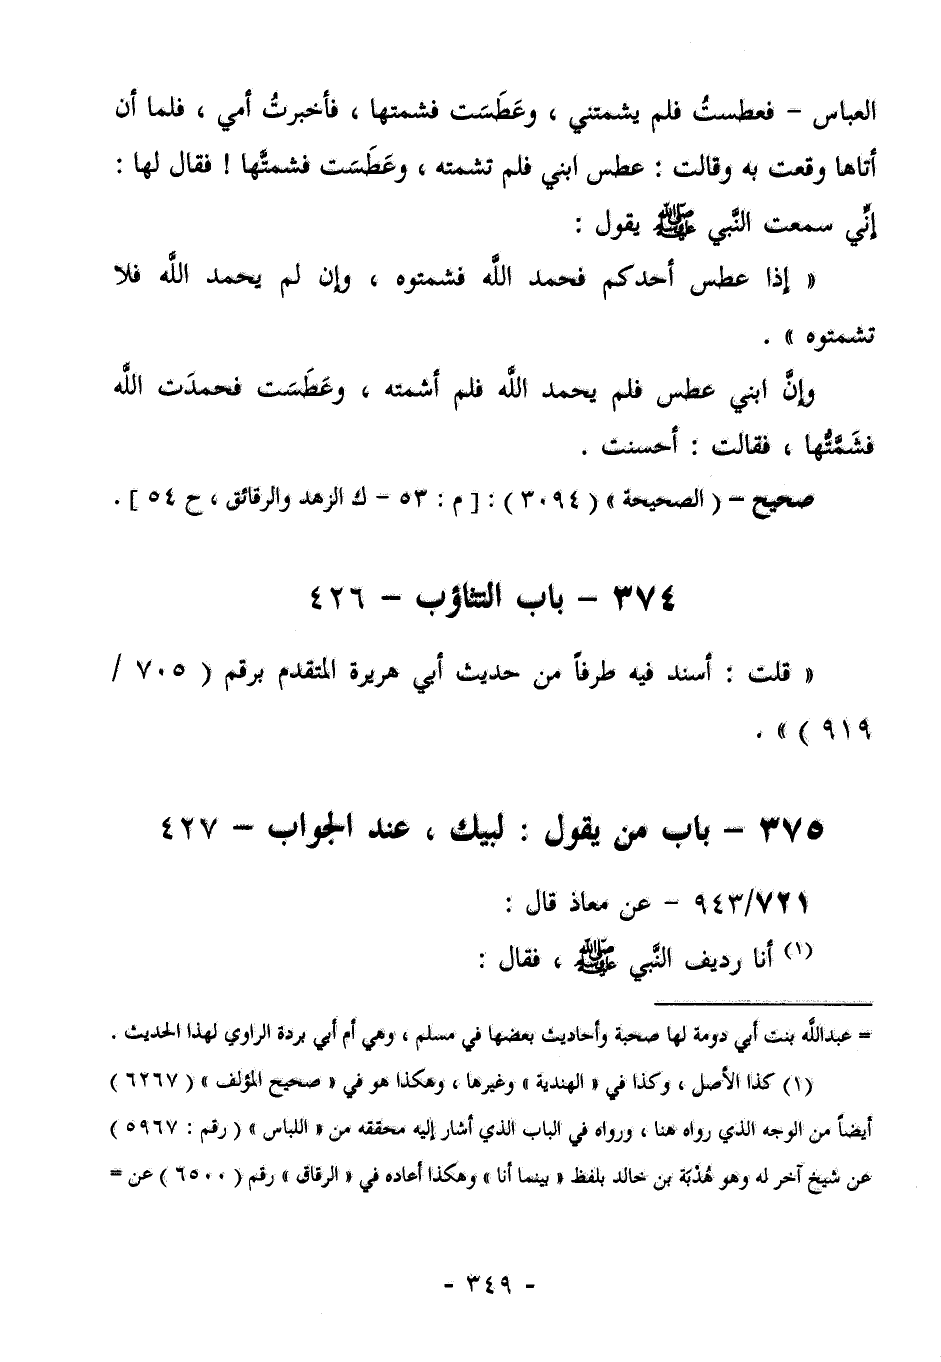 العباس - فعطستُ فلم يشمتني ، وعَطَسَت فشمتها ، فأخبرتُ أمي ، فلما أن
أتاها وقعت به وقالت : عطس ابني فلم تشمته ، وعَطَسَت فشمتَّها ! فقال لها :
إنِّي سمعت النَّبي ﷺ يقول :
« إذا عطس أحدكم فحمد اللَّه فشمتوه ، وإن لم يحمد اللَّه فلا
تشمتوه » .
وإنَّ ابني عطس فلم يحمد اللَّه فلم أشمته ، وعَطَسَت فحمدَت اللَّه
فشَمَّتُّها ، فقالت : أحسنت .
صحيح - ( الصحيحة » ( ٣٠٩٤ ) : [ م : ٥٣ - ك الزهد والرقائق ، ح ٥٤ ] .
٣٧٤ - باب التثاؤب - ٤٢٦
« قلت : أسند فيه طرفاً من حديث أبي هريرة المتقدم برقم ( ٧٠٥ /
٩١٩ ) » .
٣٧٥ - باب من يقول : لبيك ، عند الجواب - ٤٢٧
٩٤٣/٧٢١ - عن معاذ قال :
(١) أنا رديف النَّبي ﷺ ، فقال :
= عبداللَّه بنت أبي دومة لها صحبة وأحاديث بعضها في مسلم ، وهي أم أبي بردة الراوي لهذا الحديث .
(١) كذا الأصل ، وكذا في « الهندية » وغيرها ، وهكذا هو في « صحيح المؤلف » ( ٦٢٦٧ )
أيضاً من الوجه الذي رواه هنا ، ورواه في الباب الذي أشار إليه محققه من « اللباس » ( رقم : ٥٩٦٧ )
عن شيخ آخر له وهو هُدْبَة بن خالد بلفظ « بينما أنا » وهكذا أعاده في « الرقاق » رقم ( ٦٥٠٠ ) عن =
- ٣٤٩ -